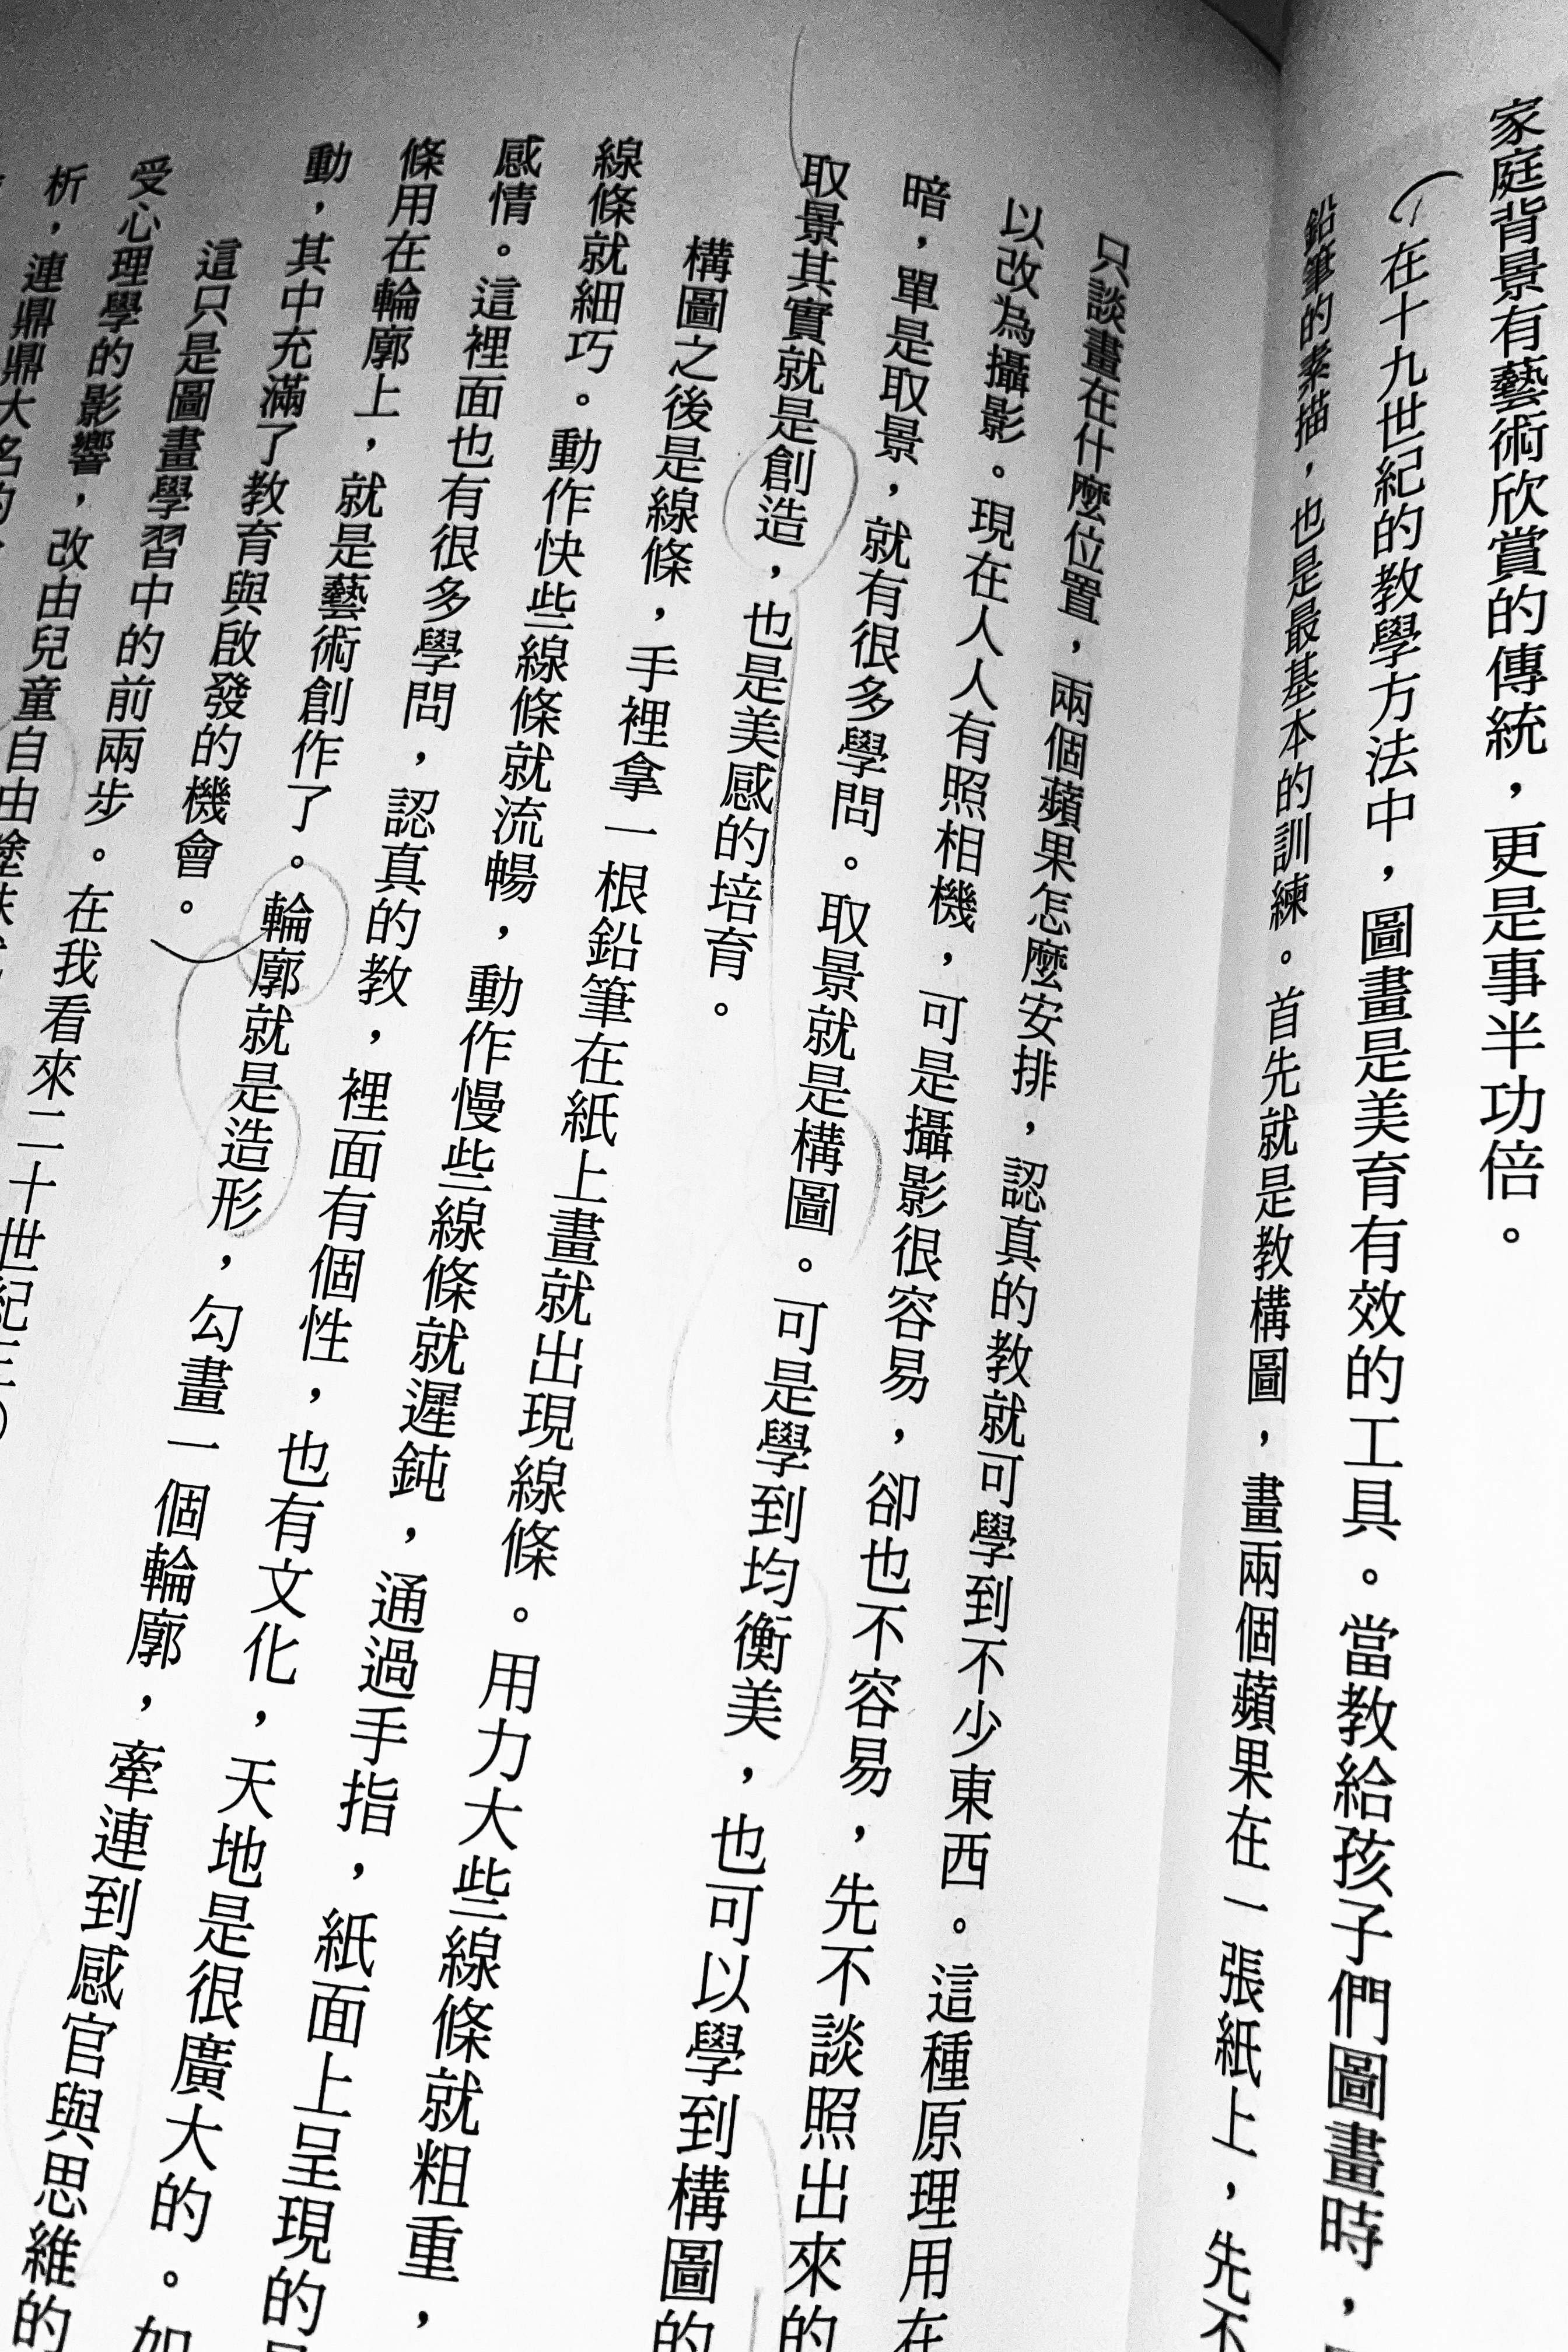 家庭背景有藝術欣賞的傳統，更是事半功倍。
在十九世紀的教學方法中，圖畫是美育有效的工具。當教給孩子們圖畫時，
鉛筆的素描，也是最基本的訓練。首先就是教構圖，畫兩個蘋果在一張紙上，先不
只談畫在什麼位置，兩個蘋果怎麼安排，認真的教就可學到不少東西。這種原理用在
以改為攝影。現在人人有照相機，可是攝影很容易，卻也不容易，先不談照出來的
暗，單是取景，就有很多學問。取景就是構圖。可是學到均衡美，也可以學到構圖的
取景其實就是創造，也是美感的培育。
構圖之後是線條，手裡拿一根鉛筆在紙上畫就出現線條。用力大些線條就粗重，
線條就細巧。動作快些線條就流暢，動作慢些線條就遲鈍，通過手指，紙面上呈現的
感情。這裡面也有很多學問，認真的教，裡面有個性，也有文化，天地是很廣大的。如
條用在輪廓上，就是藝術創作了。輪廓就是造形，勾畫一個輪廓，牽連到感官與思維的
動，其中充滿了教育與啟發的機會。
這只是圖畫學習中的前兩步。在我看來二十世紀
受心理學的影響，改由兒童自由塗抹
析，連鼎鼎大名的